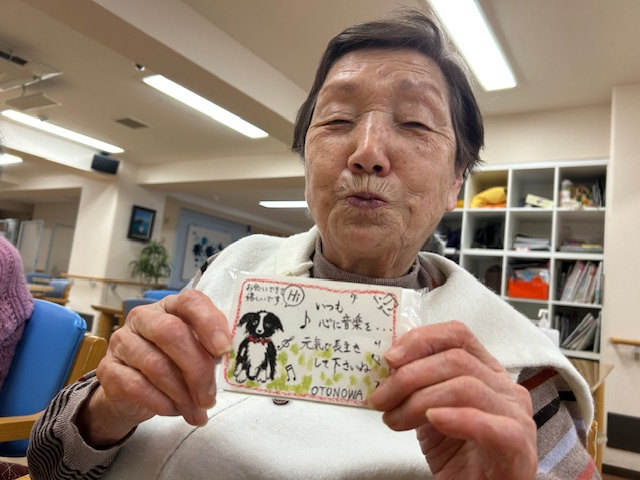 お会いできて
嬉しいです
Hi
いつも
♪心に音楽を...
元気で長生き
して下さいね
OTONOWA